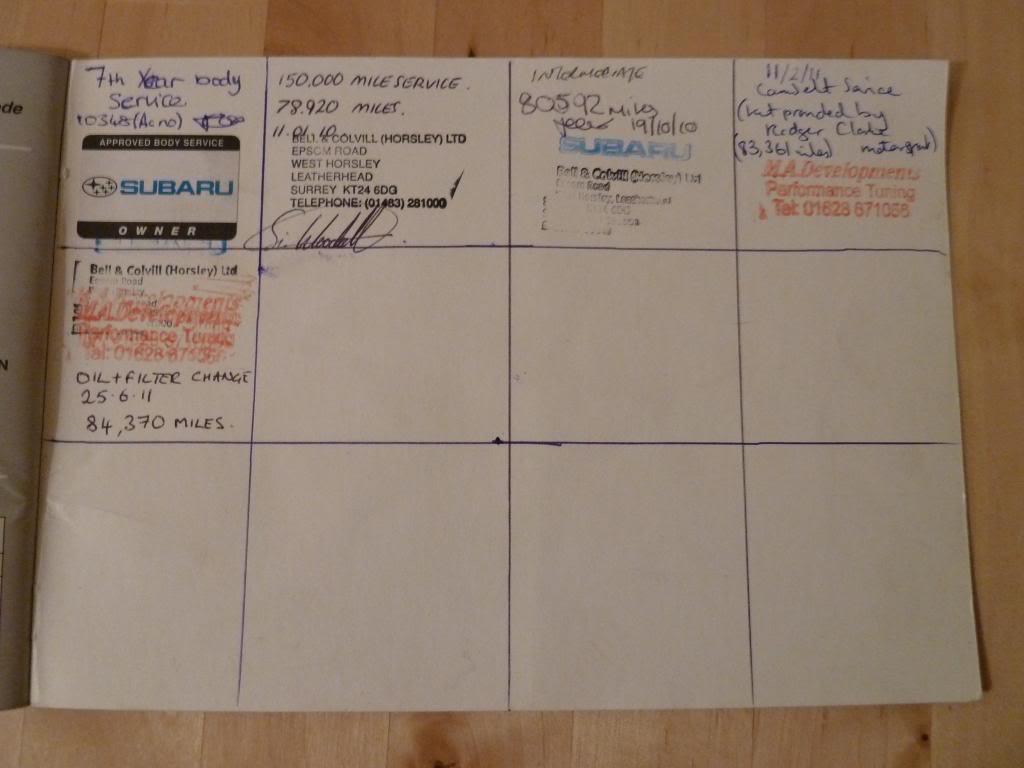 7th Year body
Service
APPROVED BODY SERVICE
SUBARU
OWNER
150,000 MILE SERVICE.
78.920 MILES.
11.01.10
BELL & COLVILL (HORSLEY) LTD
EPSOM ROAD
WEST HORSLEY
LEATHERHEAD
SURREY KT24 6DG
TELEPHONE: (01483) 281000
INTERMEDIATE
80592 MILES
19/10/10
SUBARU
Bell & Colvill (Horsley) Ltd
Epsom Road
Horsley, Leatherhead
11/2/11
Cambelt Service
(kit provided by
Rodger Clark
(83,361 miles) motorsport)
M.A. Developments
Performance Tuning
Tel: 01628 671056
Bell & Colvill (Horsley) Ltd
Epsom Road
M.A. Developments
Performance Tuning
Tel: 01628 671056
OIL + FILTER CHANGE
25.6.11
84,370 MILES.
de
N